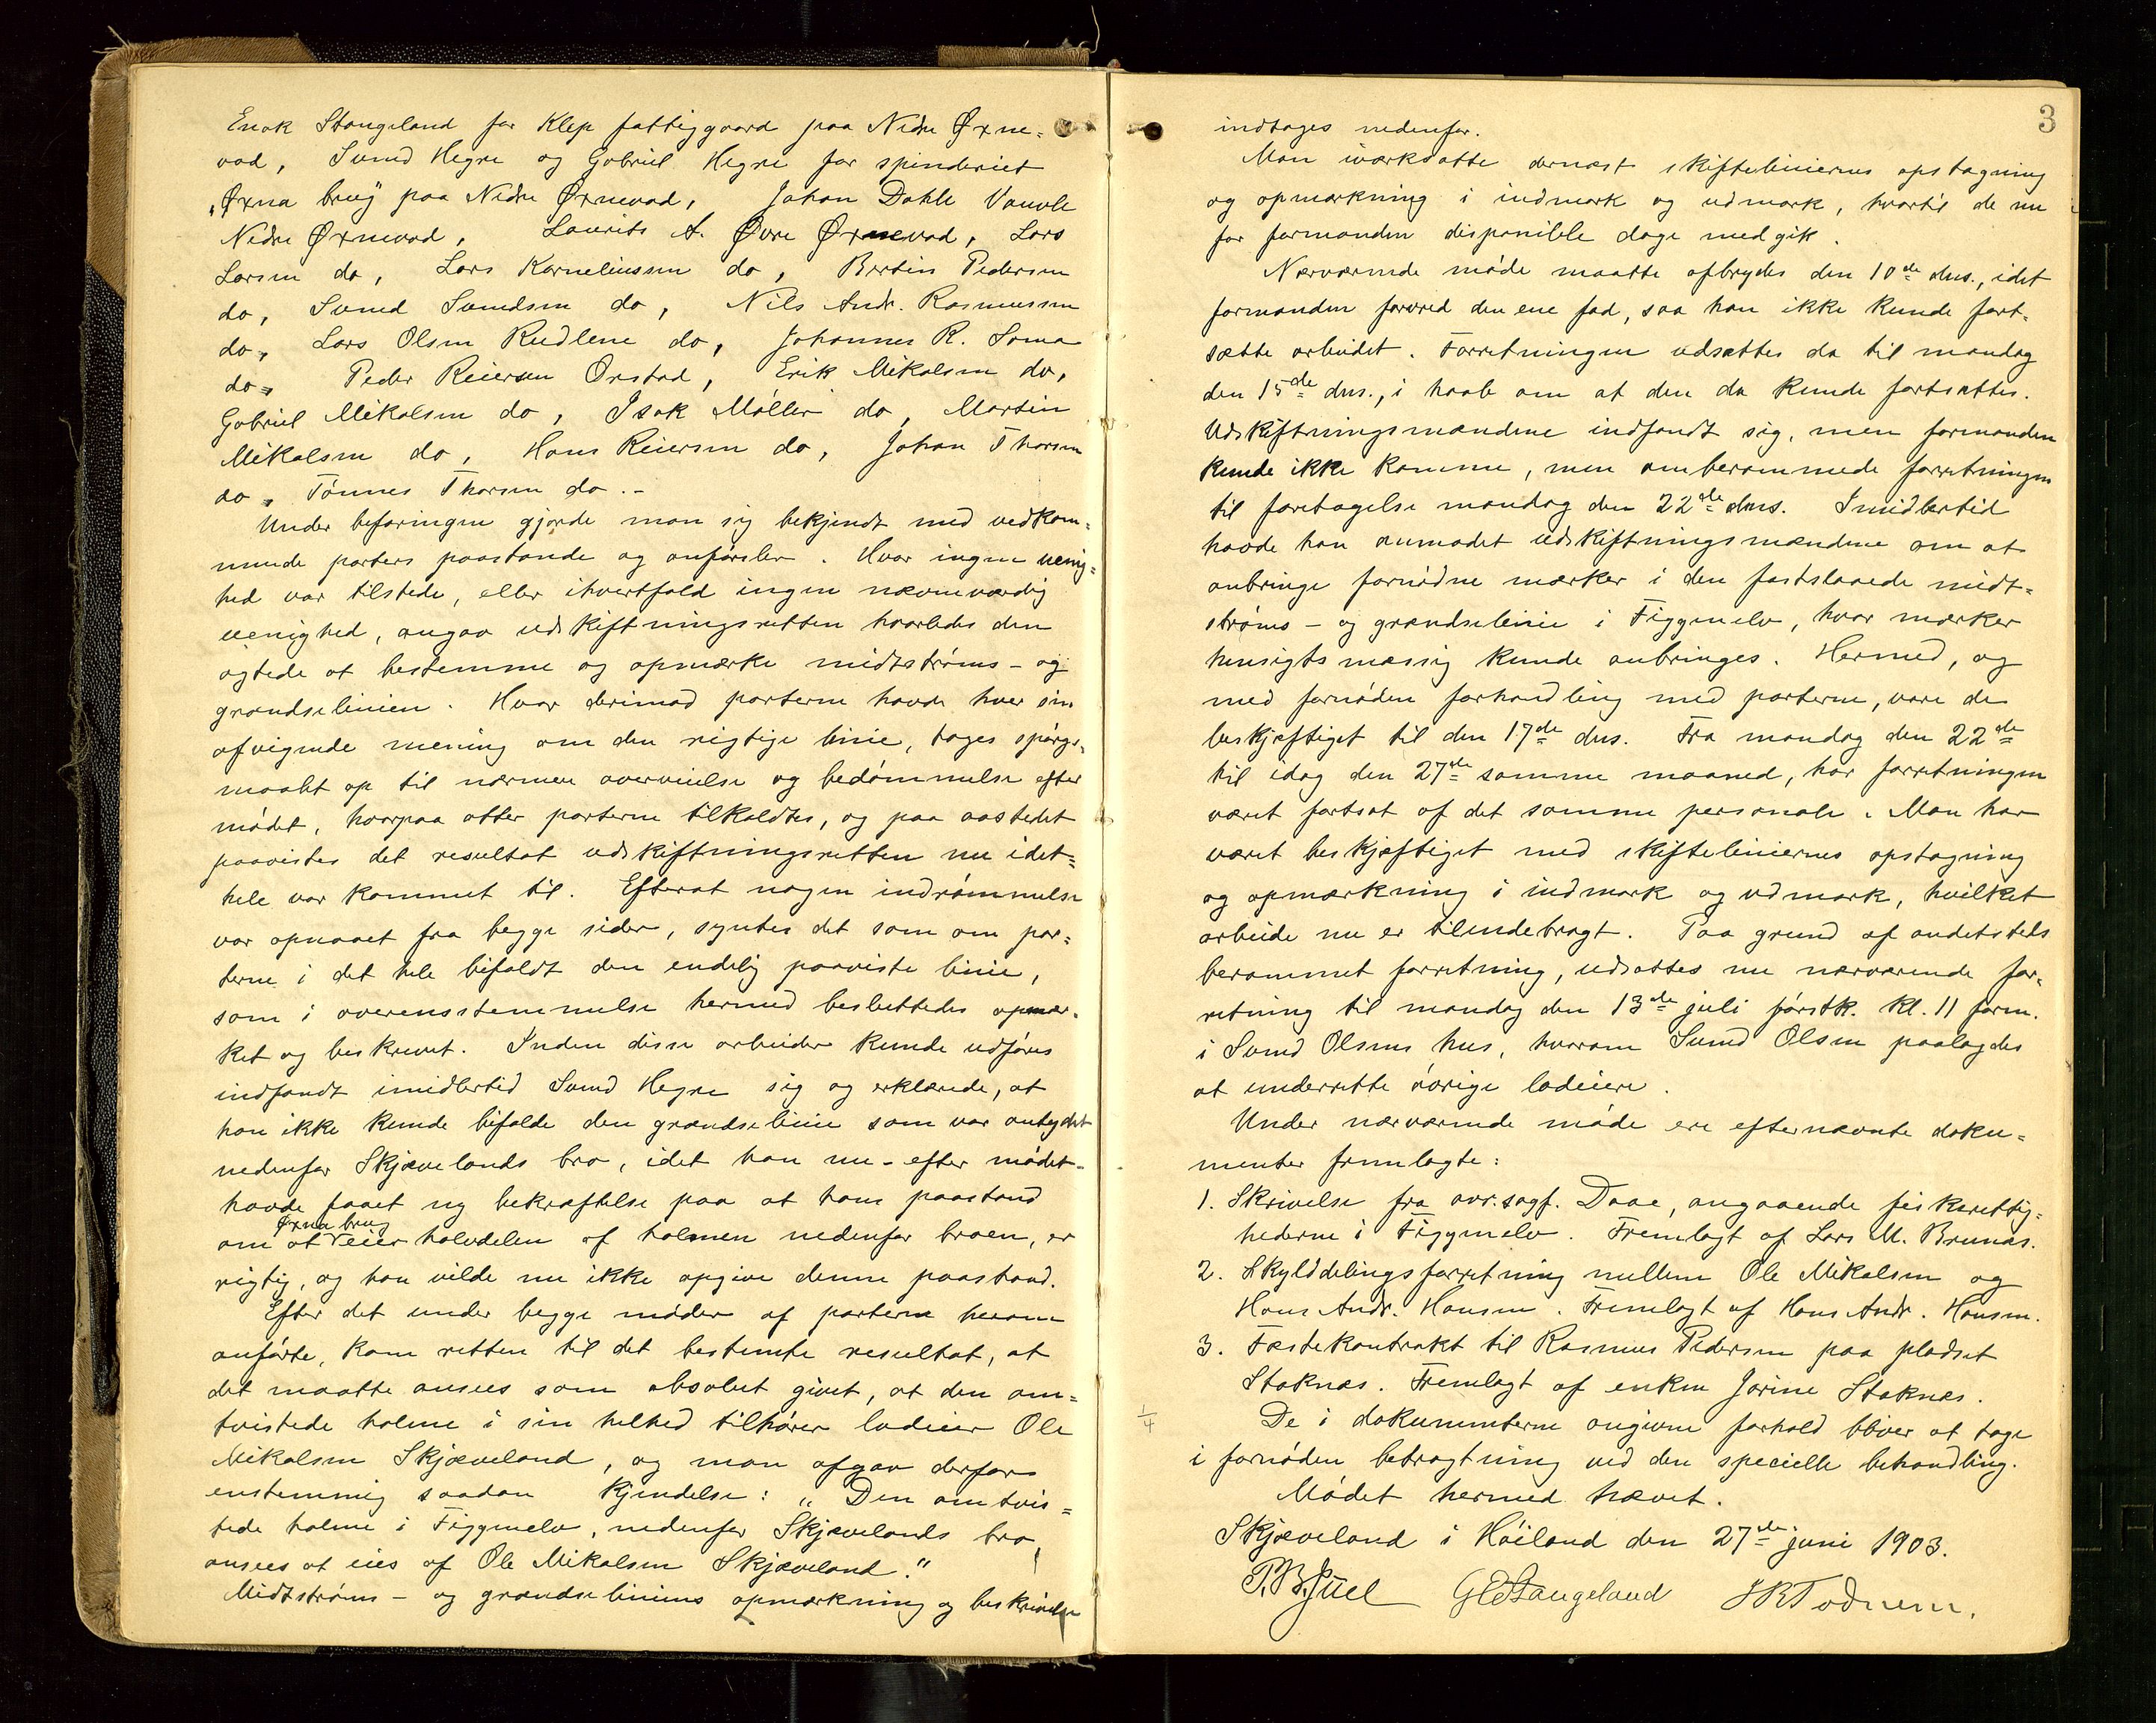 Enok Stangeland for Klep fattiggaard paa Nedre Øxne-
vad, Svend Hegre og Gabriel Hegre for spinderiet
"Øxna brug" paa Nedre Øxnevad, Johan Dahle Vauvle
Nedre Øxnevad, Laurits A. Øvre Øxnevad, Lars
Larsen do, Lars Korneliussen do, Bertin Pedersen
do, Svend Svendsen do, Nils Andr. Rasmussen
do, Lars Olsen Rudlene do, Johannes R. Soma
do, Peder Reiersen Orstad, Erik Mikalsen do,
Gabriel Mikalsen do, Isak Möller do, Martin
Mikalsen do, Hans Reiersen do, Johan Thorsen
do, Tönnes Thorsen do.-
Under befaringen gjorde man sig bekjendt med vedkom-
mende parters paastande og anförsler. Hvor ingen uenig-
hed var tilstede, eller ihvertfald ingen nævneværdig
uenighed, angav udskiftningsretten hvorledes den
agtede at bestemme og opmærke midtströms- og
grændselinien. Hvor derimod parterne havde hver sin
afvigende mening om den rigtige linie, toges spörgs-
maalet op til nærmere overveielse og bedömmelse efter
mödet, hvorpaa atter parterne tilkaldtes, og paa aastedet
paavistes det resultat udskiftningsretten nu idet-
hele var kommet til. Efterat nogen indrömmelse
var opnaaet fra begge sider, syntes det som om par-
terne i det hele bifaldt den endelig paaviste linie,
som i overensstemmelse hermed besluttedes opmær-
ket og beskrevet. Inden disse arbeider kunde udföres
indfandt imidlertid Svend Hegre sig og erklærede, at
han ikke kunde bifalde den grændselinie som var antydet
nedenfor Skjævelands bro, idet han nu - efter mödet -
havde faaet ny bekræftelse paa at hans paastand
Øxna brug
om at eier halvdelen af holmen nedenfor broen, er
rigtig, og han vilde nu ikke opgive denne paastand.
Efter det under begge möder af parterne herom
anförte, kom retten til det bestemte resultat, at
det maatte ansees som absolut givet, at den om-
tvistede holme i sin helhed tilhörer lodeier Ole
Mikalsen Skjæveland, og man afgav derfor
enstemmig saadan kjendelse: "Den omtvis-
tede holme i Figgenelv, nedenfor Skjævelands bro
ansees at eies af Ole Mikalsen Skjæveland."
Midtströms- og grændseliniens opmærkning og beskrivelse
3
indtages nedenfor.
Man iværksatte dernæst skiftelinjernes opstagning
og opmærkning i indmark og udmark, hvortil de nu
for formanden disponible dage medgik.
Nærværende möde maatte afbrydes den 10de dns., idet
formanden forvred den ene fod, saa han ikke kunde fort-
sætte arbeidet. Forretningen udsættes da til mandag
den 15de dns., i haab om at den da kunde fortsættes.
Udskiftningsmændene indfandt sig, men formanden
kunde ikke komme, men omberammede forretningen
til foretagelse mandag den 22de dns. Imidlertid
havde han anmodet udskiftningsmændene om at
anbringe fornödne mærker i den fastslaaede midt-
ströms- og grændselinie i Figgenelv, hvor mærker
hensigtsmæssig kunde anbringes. Hermed, og
med fornöden forhandling med parterne, vare de
beskjæftiget til den 17de dns. Fra mandag den 22de
til idag den 27de samme maaned, har forretningen
været fortsat af det samme personale. Man har
været beskjæftiget med skiftelinjernes opstagning
og opmærkning i indmark og udmark, hvilket
arbeide nu er tilendebragt. Paa grund af andetsteds
berammet forretning, udsættes nu nærværende for-
retning til mandag den 13de juli förstk. kl. 11 form.
i Svend Olsens hus, hvorom Svend Olsen paalagdes
at underrette övrige lodeiere.
Under nærværende möde ere efternævnte doku-
menter fremlagte:
1. Skrivelse fra ovr.sagf. Daae, angaaende fiskerettig-
hederne i Figgenelv. Fremlagt af Lars M. Brunæs.
2. Skylddelingsforretning mellem Ole Mikalsen og
Hans Andr. Hansen. Fremlagt af Hans Andr. Hansen.
3. Fæstekontrakt til Rasmus Pedersen paa pladset
Stoknæs. Fremlagt af enken Jorine Stoknæs.
1/4
De i dokumenterne angivne forhold bliver at tage
i fornöden betragtning ved den specielle behandling.
Mödet hermed hævet.
Skjæveland i Höiland den 27de juni 1903.
P.B.Juel G E Stangeland J R Todnem.